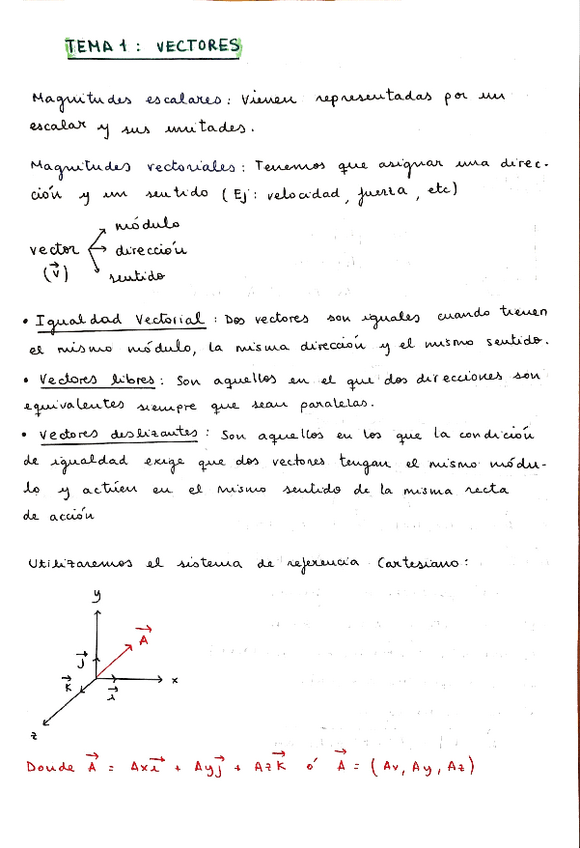 TEMA 1 : VECTORES
Magnitudes escalares: Vienen representadas por un
escalar y sus unitades.
Magnitudes vectoriales: Tenemos que asignar una direc-
ción y un sentido (Ej: velocidad, fuerza, etc)
módulo
vector → dirección
(v⃗) sentido
• Igualdad Vectorial : Dos vectores son iguales cuando tienen
el mismo módulo, la misma dirección y el mismo sentido.
• Vectores libres: Son aquellos en el que dos direcciones son
equivalentes siempre que sean paralelas.
• Vectores deslizantes: Son aquellos en los que la condición
de igualdad exige que dos vectores tengan el mismo módu-
lo y actúen en el mismo sentido de la misma recta
de acción
Utilizaremos el sistema de referencia Cartesiano:
y
A⃗
j⃗
k⃗ i⃗ x
z
Donde A⃗ = Axi⃗ + Ayj⃗ + Azk⃗ ó A⃗ = (Av, Ay, Az)